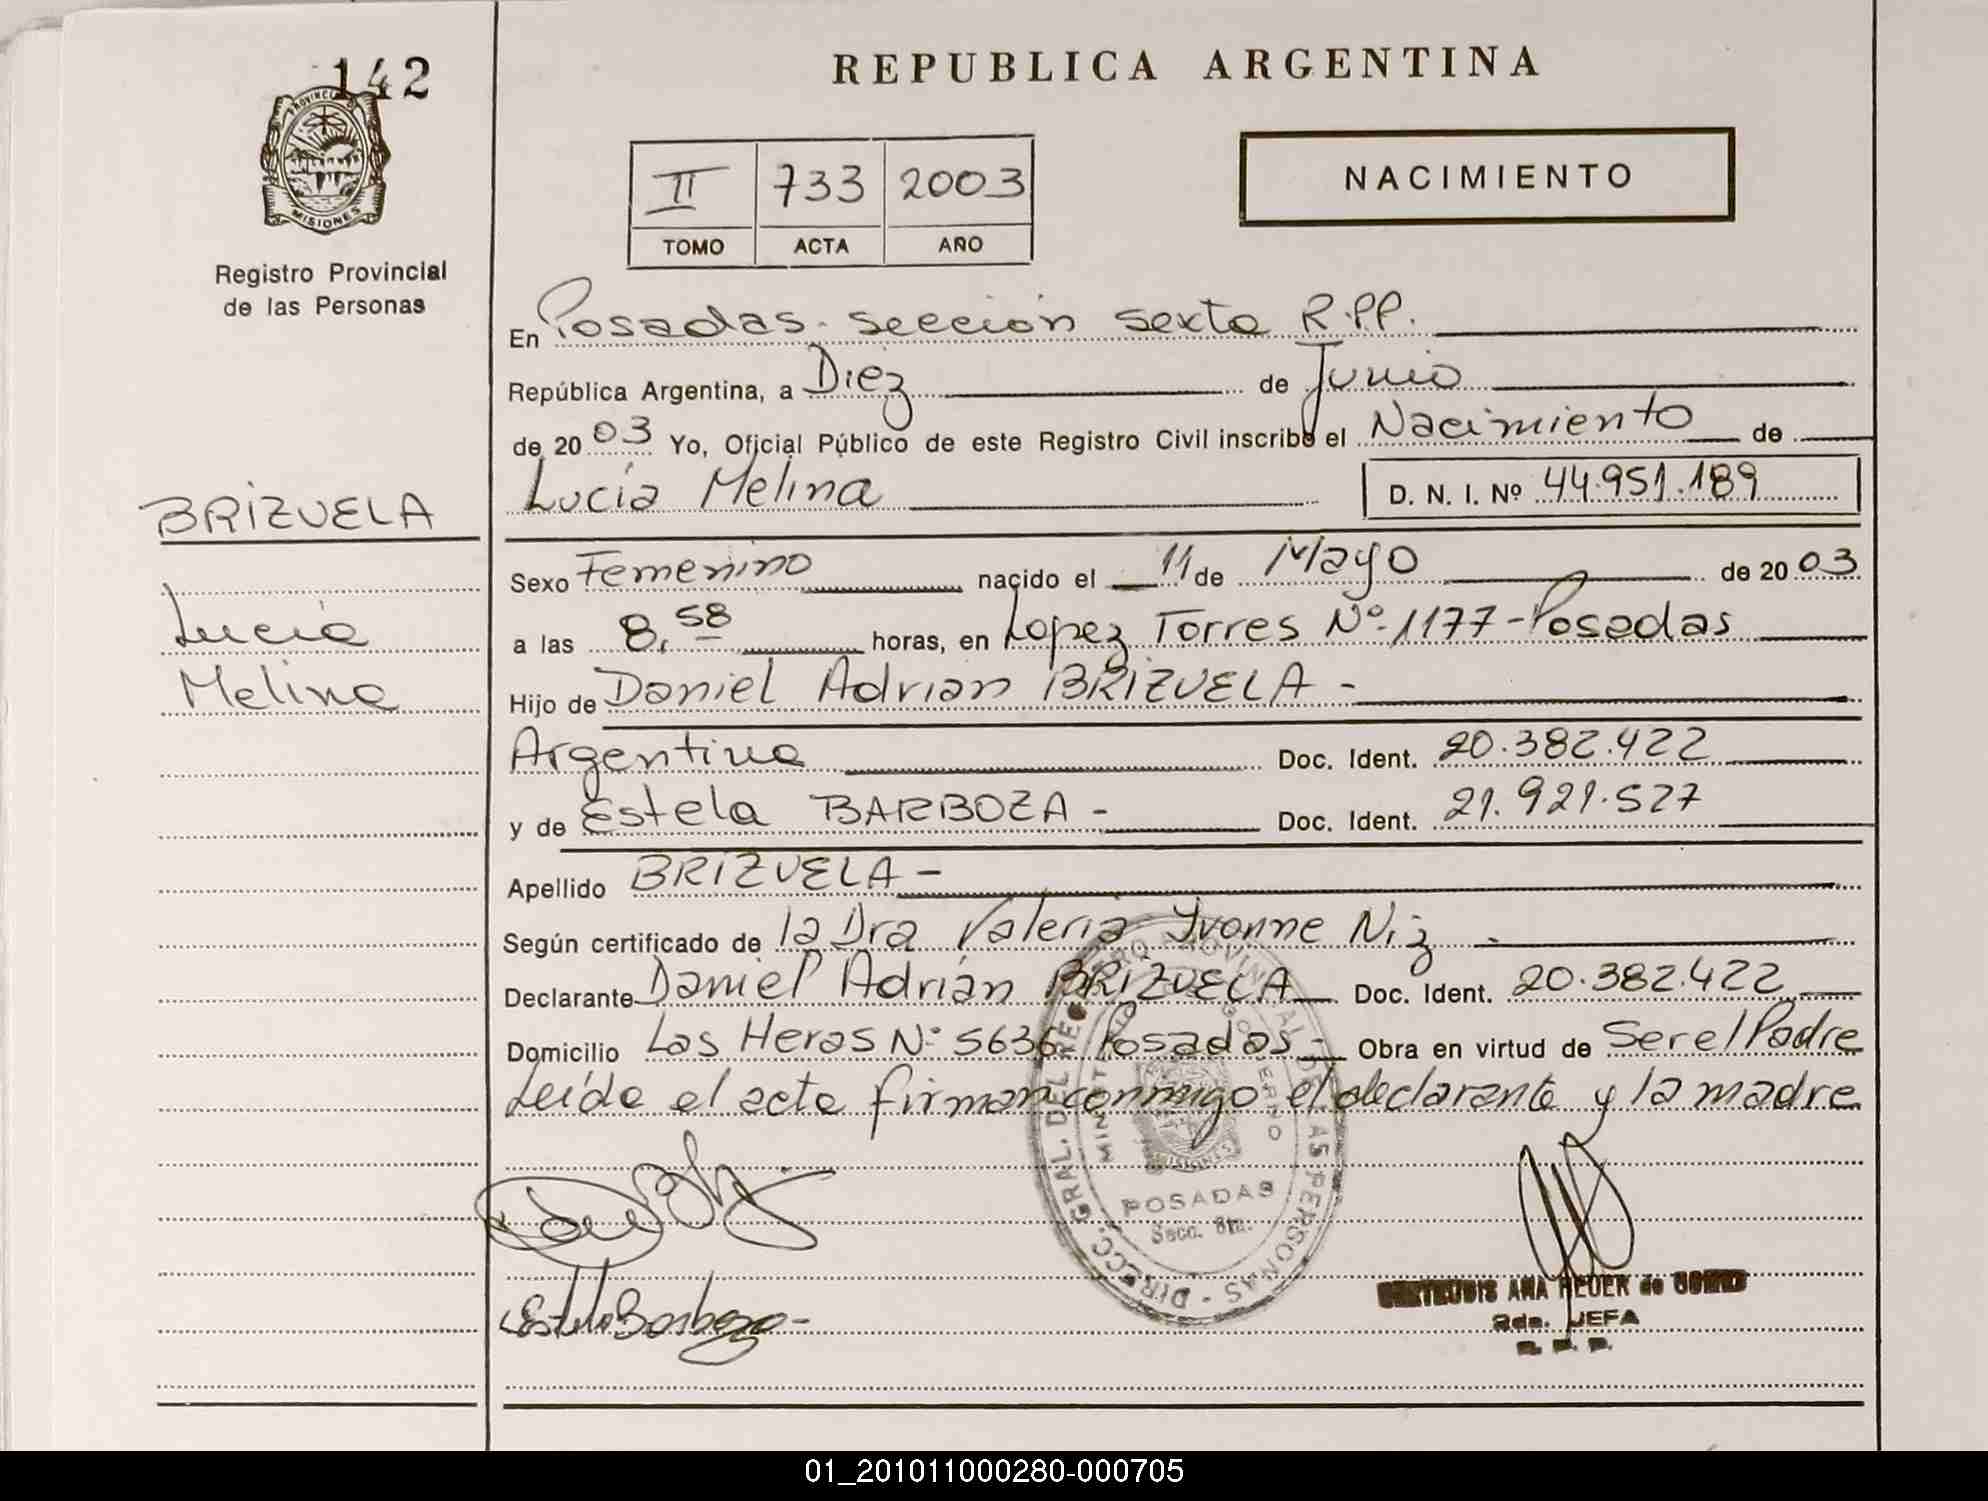 142
REPUBLICA ARGENTINA
PROVINCIA DE
MISIONES
Registro Provincial
de las Personas
II 733 2003
TOMO ACTA AÑO
NACIMIENTO
En Posadas - sección sexta R.P.P.
República Argentina, a Diez de Junio
de 2003 Yo, Oficial Público de este Registro Civil inscribo el Nacimiento de
Lucía Melina D. N. I. Nº 44.951.189
BRIZUELA
Lucía
Melina
Sexo Femenino nacido el 11 de Mayo de 2003
a las 8,58 horas, en Lopez Torres Nº 1177 - Posadas
Hijo de Daniel Adrian BRIZUELA -
Argentina Doc. Ident. 20.382.422
y de Estela BARBOZA - Doc. Ident. 21.921.527
Apellido BRIZUELA -
Según certificado de la Dra Valeria Yvonne Niz -
Declarante Daniel Adrián BRIZUELA Doc. Ident. 20.382.422
Domicilio Las Heras Nº 5636 Posadas - Obra en virtud de Ser el Padre
Leída el acta firman conmigo el declarante y la madre
DIRECC. GRAL. DEL REGISTRO PROVINCIAL DE LAS PERSONAS
MINISTERIO DE GOBIERNO
MISIONES
POSADAS
Secc. 6ta.
Estela Barboza -
ANA REUER de
2da. JEFA
R. P. P.
01_201011000280-000705